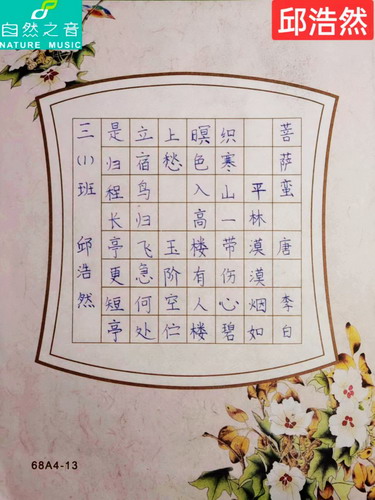 自然之音
NATURE MUSIC
邱浩然
菩萨蛮 唐 李白
平林漠漠烟如
织寒山一带伤心碧
暝色入高楼有人楼
上愁 玉阶空伫
立宿鸟归飞急何处
是归程长亭更短亭
三(1)班 邱浩然
68A4-13